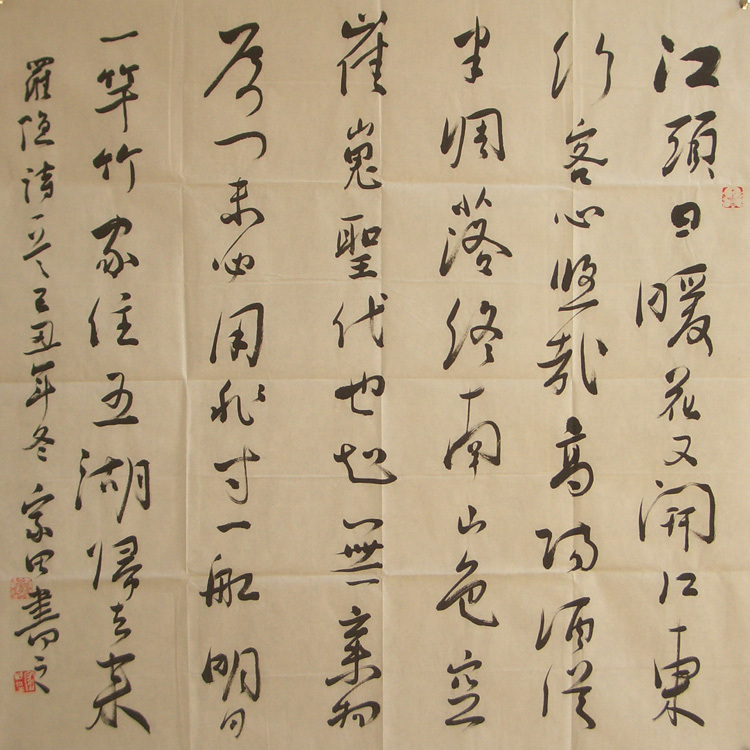 江頭日暖花又開江東
行客心悠哉高陽酒徒
半凋落終南山色空
崔嵬聖代也知無棄物
侯門未必用非才一船明月
一竿竹家住五湖歸去來
羅隐詩一首己丑年冬宗田書之